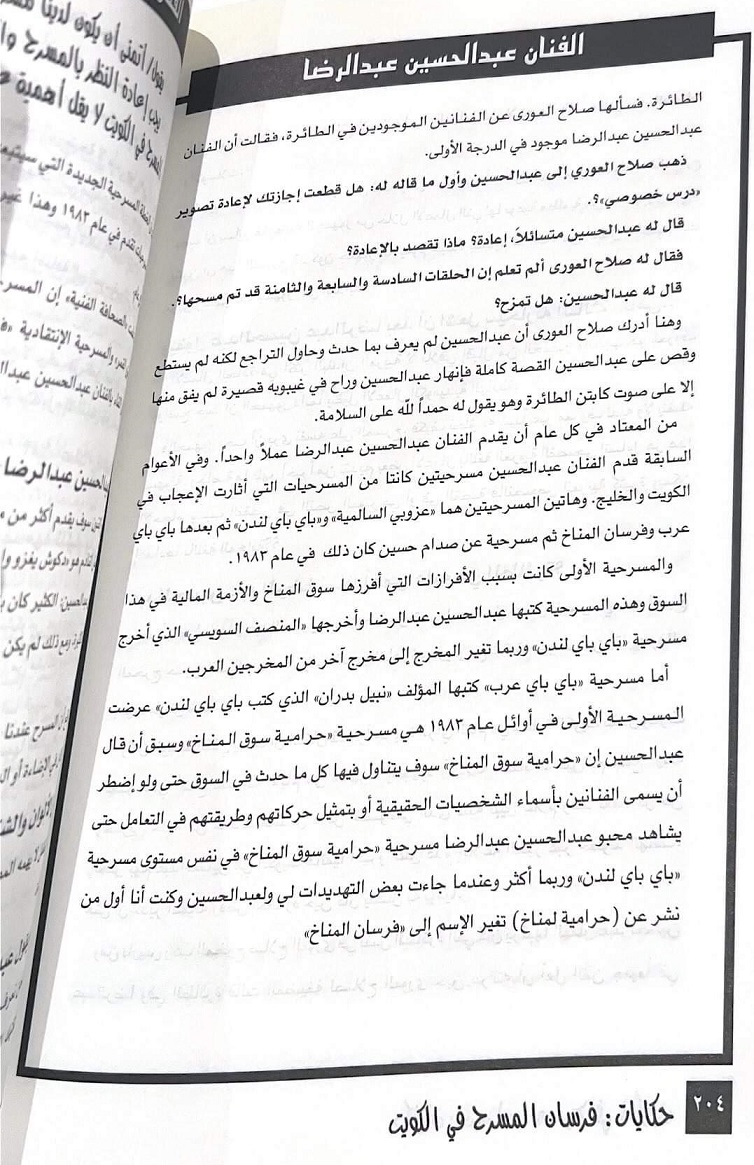 الفنان عبدالحسين عبدالرضا
الطائرة. فسألها صلاح العورى عن الفنانين الموجودين في الطائرة، فقالت أن الفنان
عبدالحسين عبدالرضا موجود في الدرجة الأولى.
ذهب صلاح العوري إلى عبدالحسين وأول ما قاله له: هل قطعت إجازتك لإعادة تصوير
«درس خصوصي»؟.
قال له عبدالحسين متسائلاً، إعادة؟ ماذا تقصد بالإعادة؟
فقال له صلاح العورى ألم تعلم إن الحلقات السادسة والسابعة والثامنة قد تم مسحها؟.
قال له عبدالحسين: هل تمزح؟
وهنا أدرك صلاح العورى أن عبدالحسين لم يعرف بما حدث وحاول التراجع لكنه لم يستطع
وقص على عبدالحسين القصة كاملة فإنهار عبدالحسين وراح في غيبوبه قصيرة لم يفق منها
إلا على صوت كابتن الطائرة وهو يقول له حمداً لله على السلامة.
من المعتاد في كل عام أن يقدم الفنان عبدالحسين عبدالرضا عملاً واحداً. وفي الأعوام
السابقة قدم الفنان عبدالحسين مسرحيتين كانتا من المسرحيات التي أثارت الإعجاب في
الكويت والخليج. وهاتين المسرحيتين هما «عزوبي السالمية» و«باي باي لندن» ثم بعدها باي باي
عرب وفرسان المناخ ثم مسرحية عن صدام حسين كان ذلك في عام ١٩٨٣.
والمسرحية الأولى كانت بسبب الأفرازات التي أفرزها سوق المناخ والأزمة المالية في هذا
السوق وهذه المسرحية كتبها عبدالحسين عبدالرضا وأخرجها «المنصف السويسي» الذي أخرج
مسرحية «باي باي لندن» وربما تغير المخرج إلى مخرج آخر من المخرجين العرب.
أما مسرحية «باي باي عرب» كتبها المؤلف «نبيل بدران» الذي كتب باي باي لندن» عرضت
المسرحية الأولى في أوائل عام ١٩٨٣ هي مسرحية «حرامية سوق المناخ» وسبق أن قال
عبدالحسين إن «حرامية سوق المناخ» سوف يتناول فيها كل ما حدث في السوق حتى ولو إضطر
أن يسمى الفنانين بأسماء الشخصيات الحقيقية أو بتمثيل حركاتهم وطريقتهم في التعامل حتى
يشاهد محبو عبدالحسين عبدالرضا مسرحية «حرامية سوق المناخ» في نفس مستوى مسرحية
«باي باي لندن» وربما أكثر وعندما جاءت بعض التهديدات لي ولعبدالحسين وكنت أنا أول من
نشر عن (حرامية لمناخ) تغير الإسم إلى «فرسان المناخ»
٢٠٤
حكايات: فرسان المسرح في الكويت